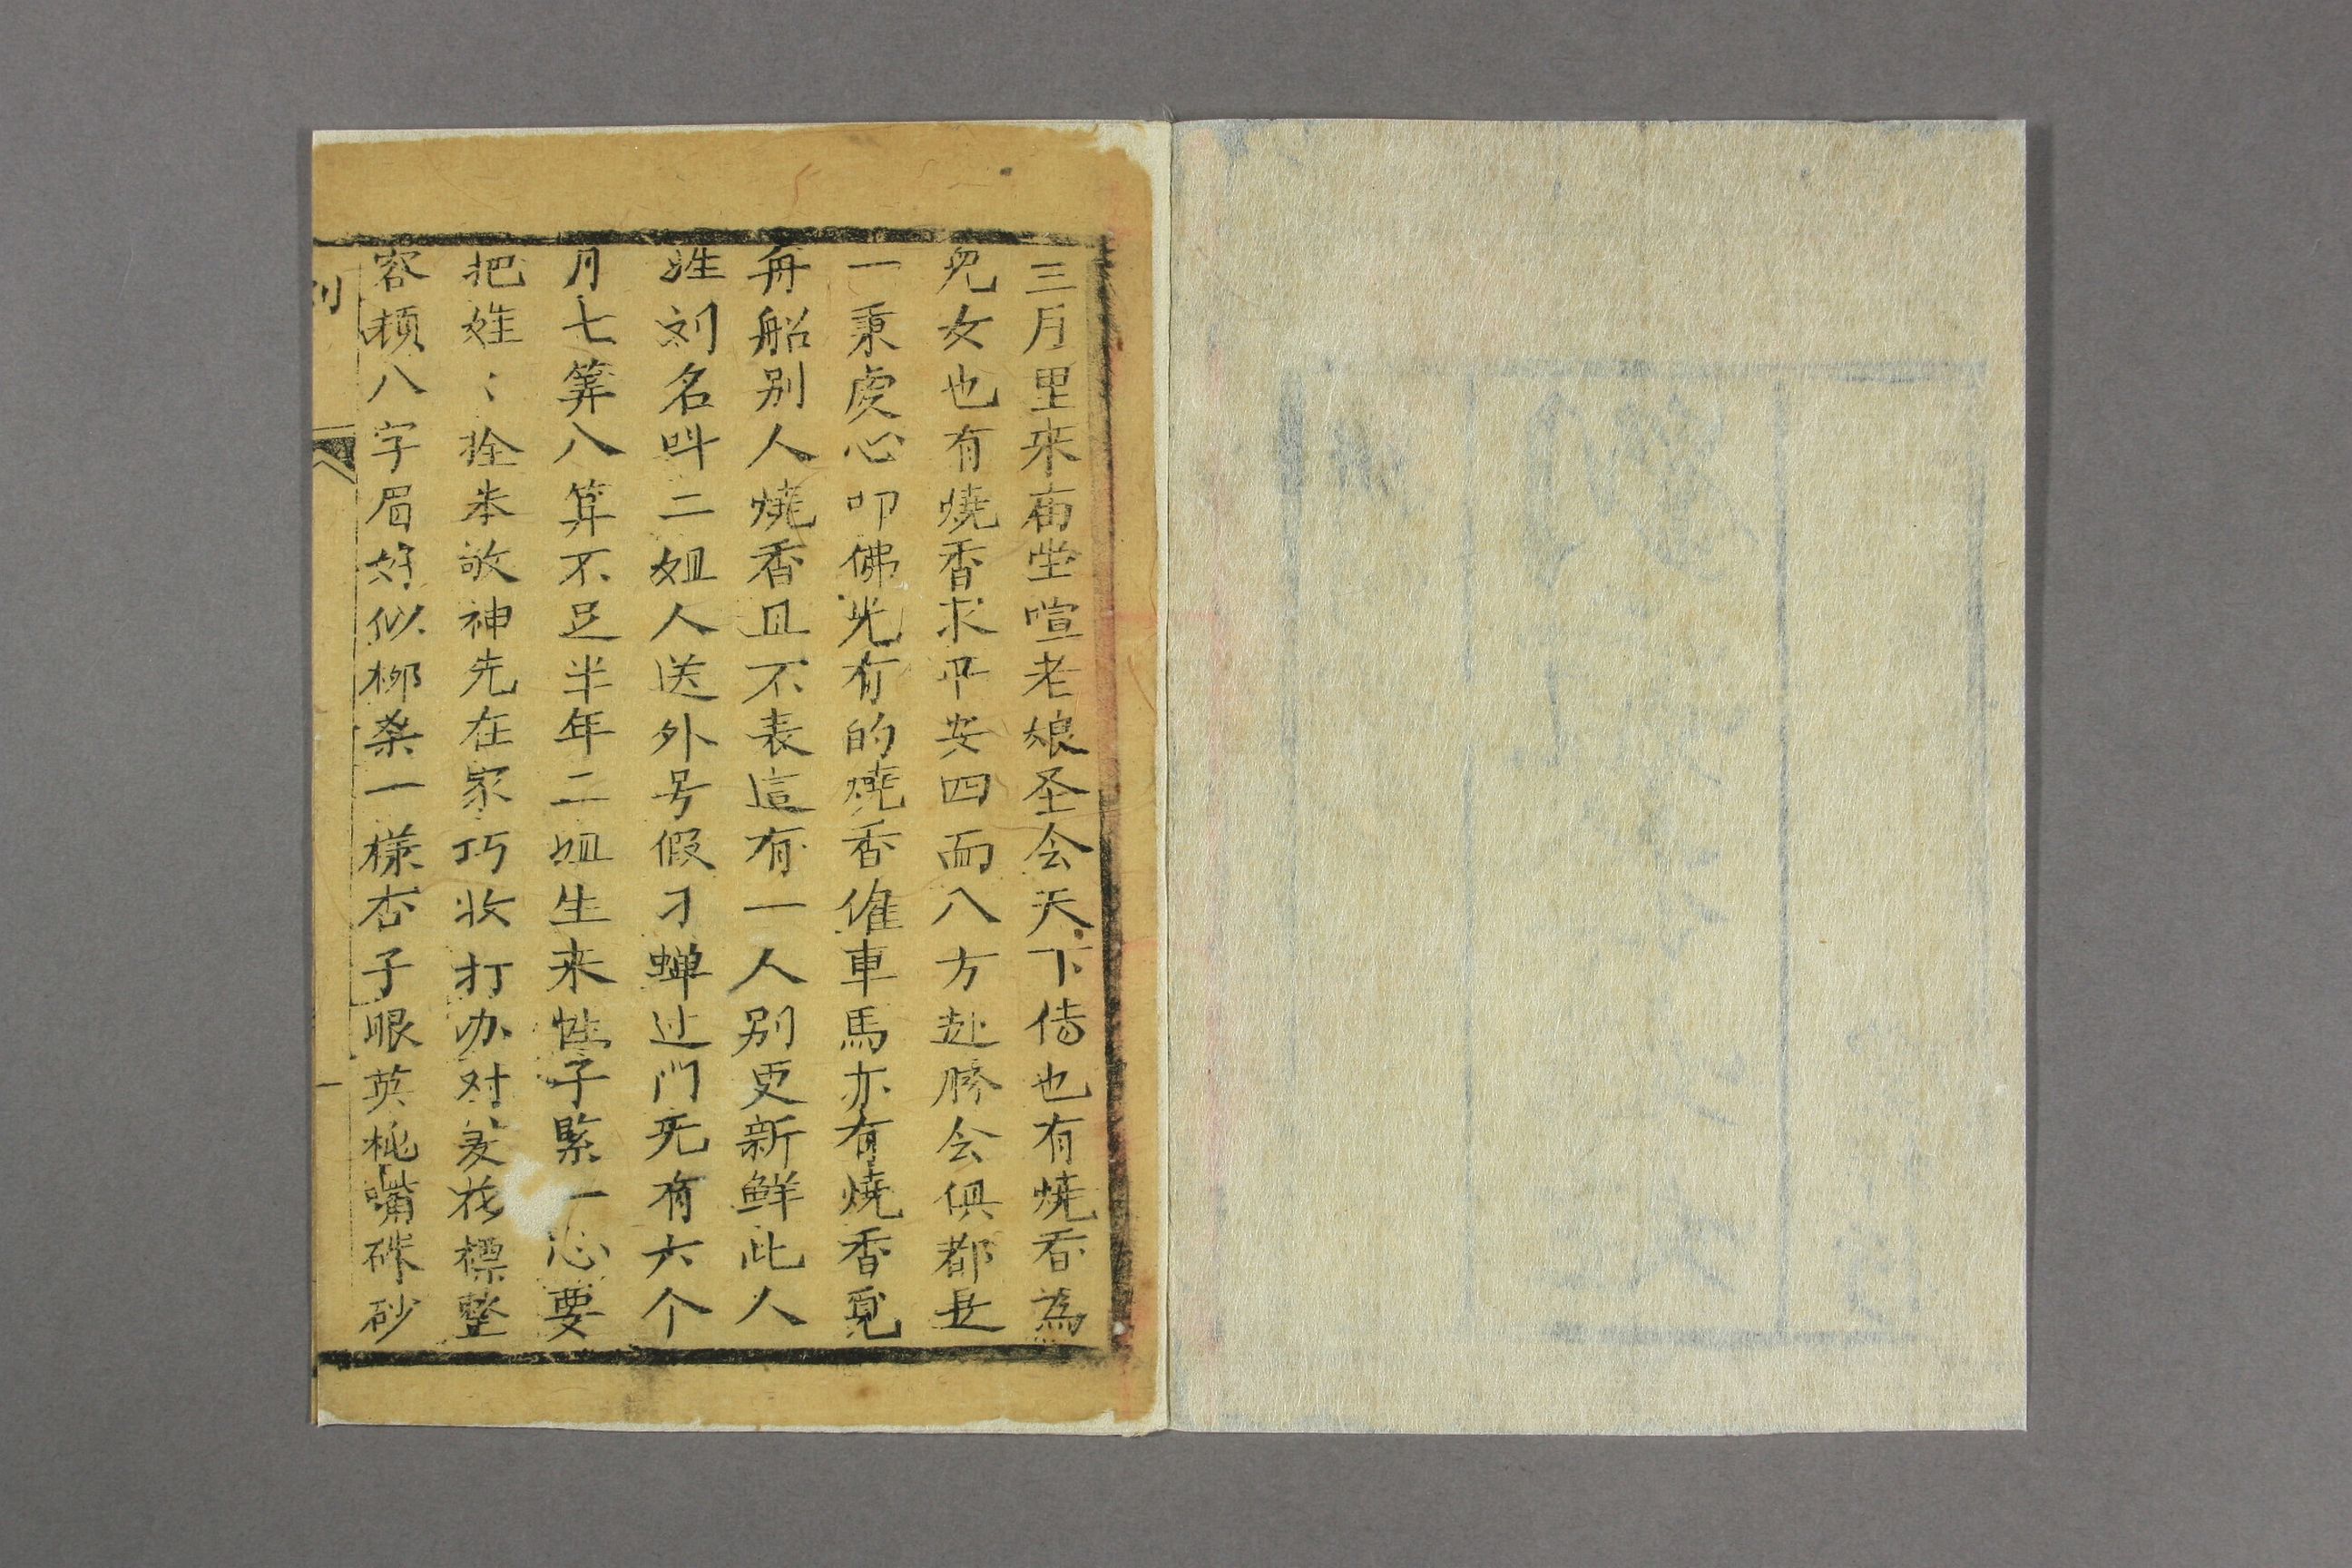 三月里来面坐喧老娘圣会天下传也有燒香為
児女也有燒香求平安四面八方赴勝会俱都是
一秉虔心叩佛光有的燒香催車馬亦有燒香覓
舟船别人燒香且不表這有一人别更新鲜此人
姓刘名叫二姐人送外号假刁蝉过门死有六个
月七筭八算不足半年二姐生来性子緊一心要
把姓〻拴本敬神先在家巧妆打办对菱花標整
容顔八字眉好似柳桒一樣杏子眼英桃嘴硃砂
刘
一